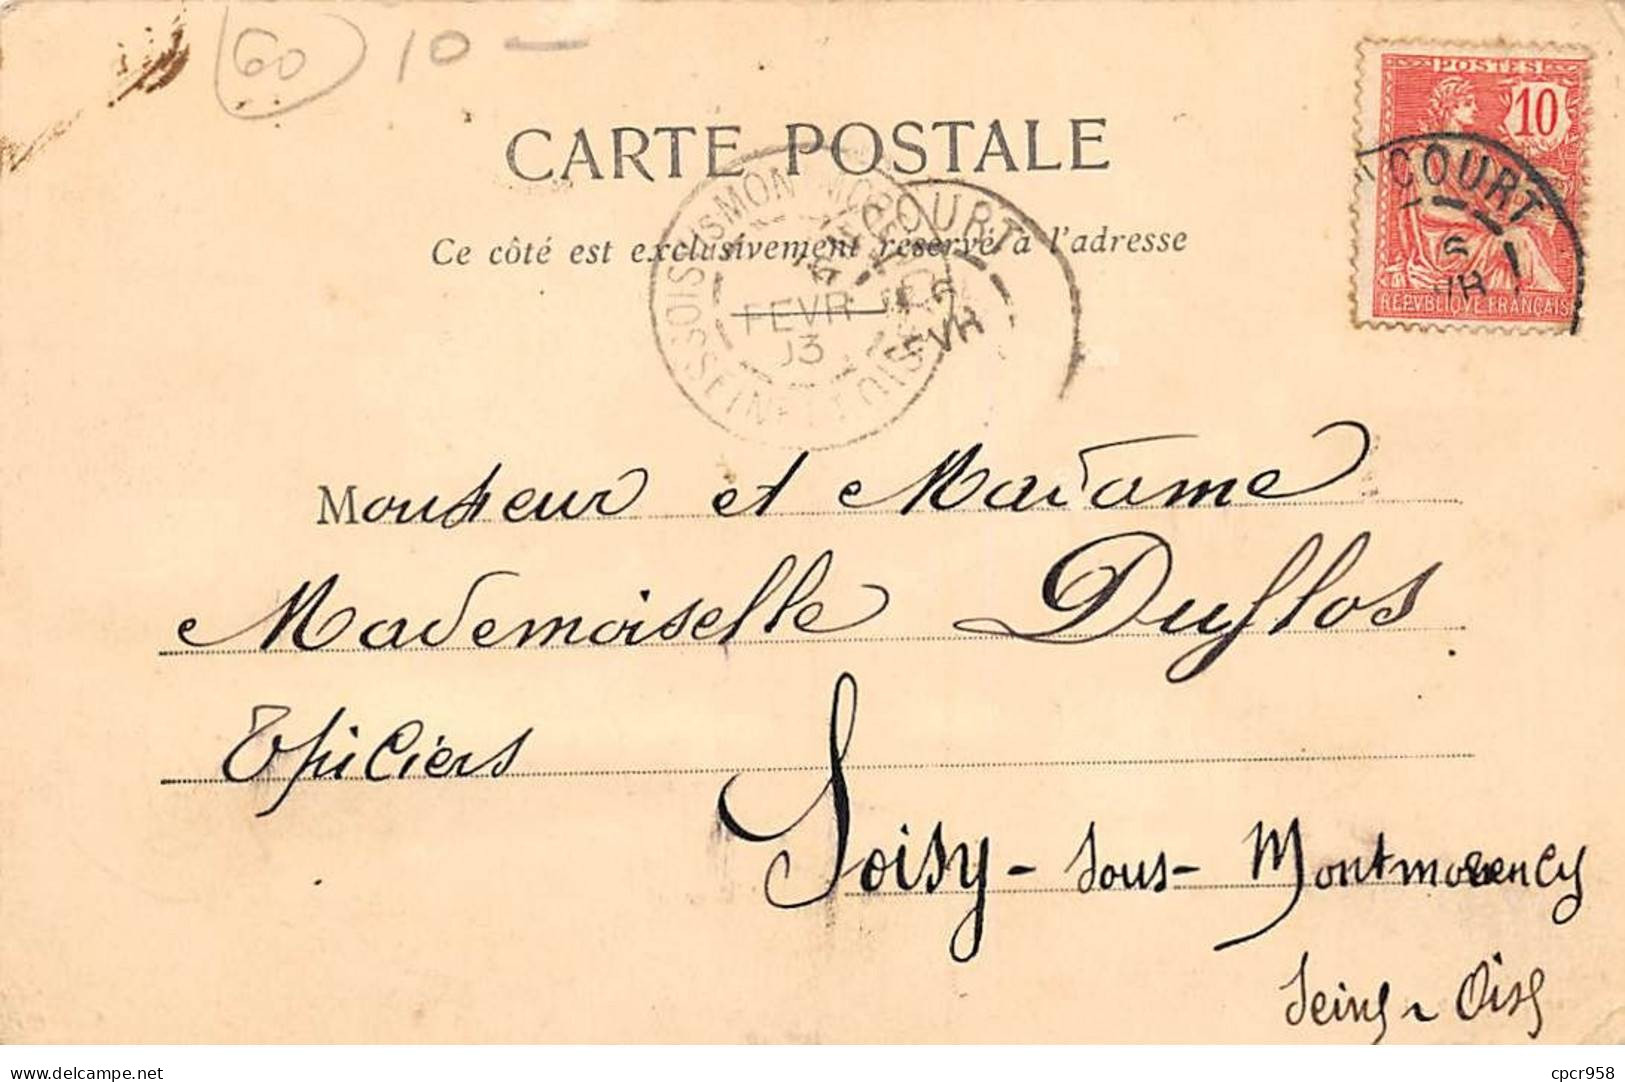 60 10 -
POSTES
10
CARTE POSTALE
COURT
6
Ce côté est exclusivement réservé à l'adresse
COURT
6
FEVR
FEVR
03
REPVBLIQUE FRANÇAISE
SOISY SOUS MONTMORENCY
SEINE-ET-OISE
Monsieur et Madame
Mademoiselle Duflos
Epiciers
Soisy - sous - Montmorency
Seine & Oise
delcampe.net
cpcr958